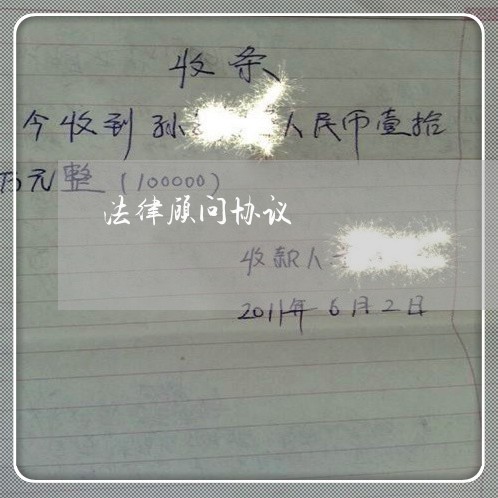 收条
今收到孙 人民币壹拾
万元整（100000）
法律顾问协议
收款人
2011年6月2日